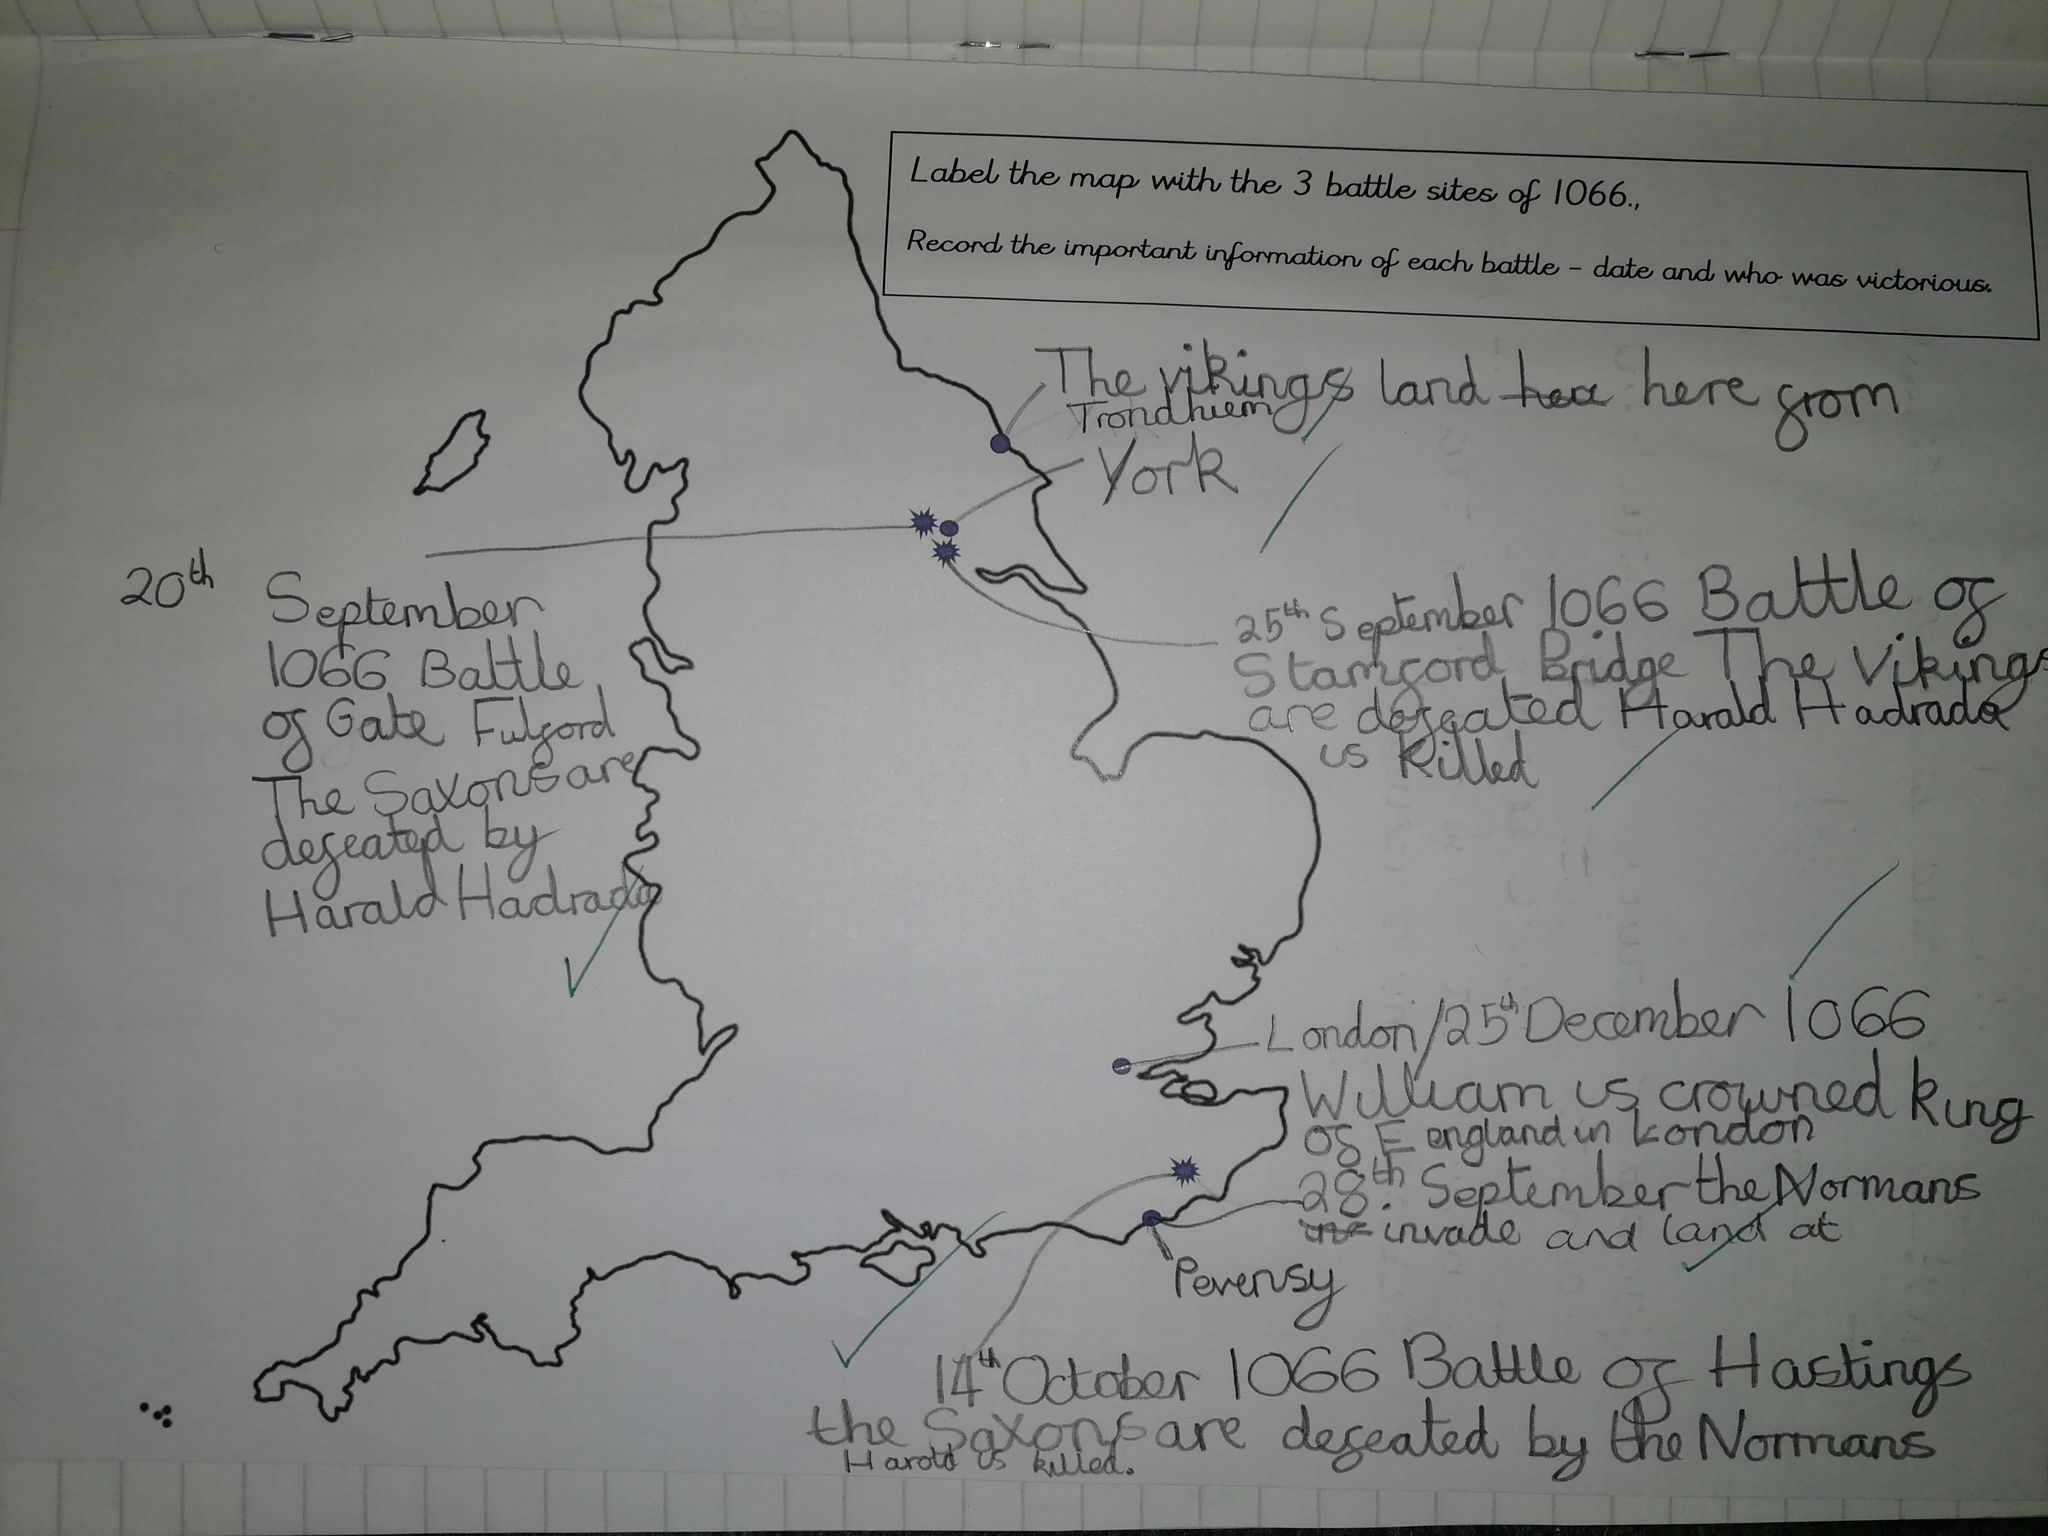 Label the map with the 3 battle sites of 1066.,
Record the important information of each battle – date and who was victorious.
The vikings land here from
Trondhiem
York
20th September
1066 Battle
of Gate Fulford
The Saxons are
defeated by
Harald Hadrada
25th September 1066 Battle of
Stamford Bridge The Vikings
are defeated Harald Hadrada
is killed
London/25th December 1066
William is crowned king
of E england in London
28th September the Normans
invade and land at
Pevensy
14th October 1066 Battle of Hastings
the Saxons are defeated by the Normans
Harold is killed.